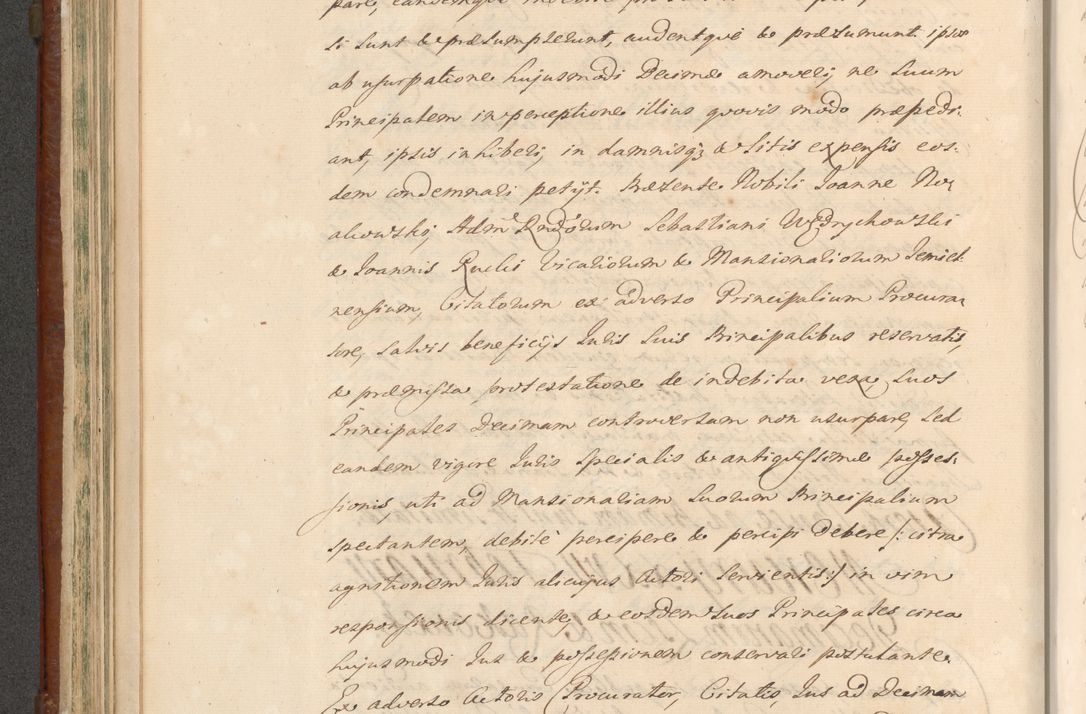 si sunt & præsumpserunt, audentque & præsumunt ipsos
ab usurpatione hujusmodi Decimæ amoveri, ne suum
Principalem in perceptione illius quovis modo præpedi-
ant, ipsis inhiberi, in damnisq; & Litis expensis eos-
dem condemnari petijt. Præsente Nobili Joanne No-
akowski, Adm Rndorum Sebastiani Wędrychowski
& Joannis Ruclis Vicariorum & Mansionariorum Temiel-
nensium, Citatorum ex adverso Principalium Procura-
tore, salvis beneficijs Juris suis Principalibus reservatis,
& præmissa protestatione de indebita vexa, suos
Principales Decimam controversam non usurpare, sed
eandem vigore Juris specialis & antiquissimæ posses-
sionis, uti ad Mansionariam suorum Principalium
spectantem, debite percipere & percipi debere /: citra
agnitionem Juris alicujus Actori servientis :/ in vim
responsionis dicente, & eosdem suos Principales circa
hujusmodi Jus & possessionem conservari postulante.
Ex adverso Actoris Procurator, Citatis, Jus ad Decimam